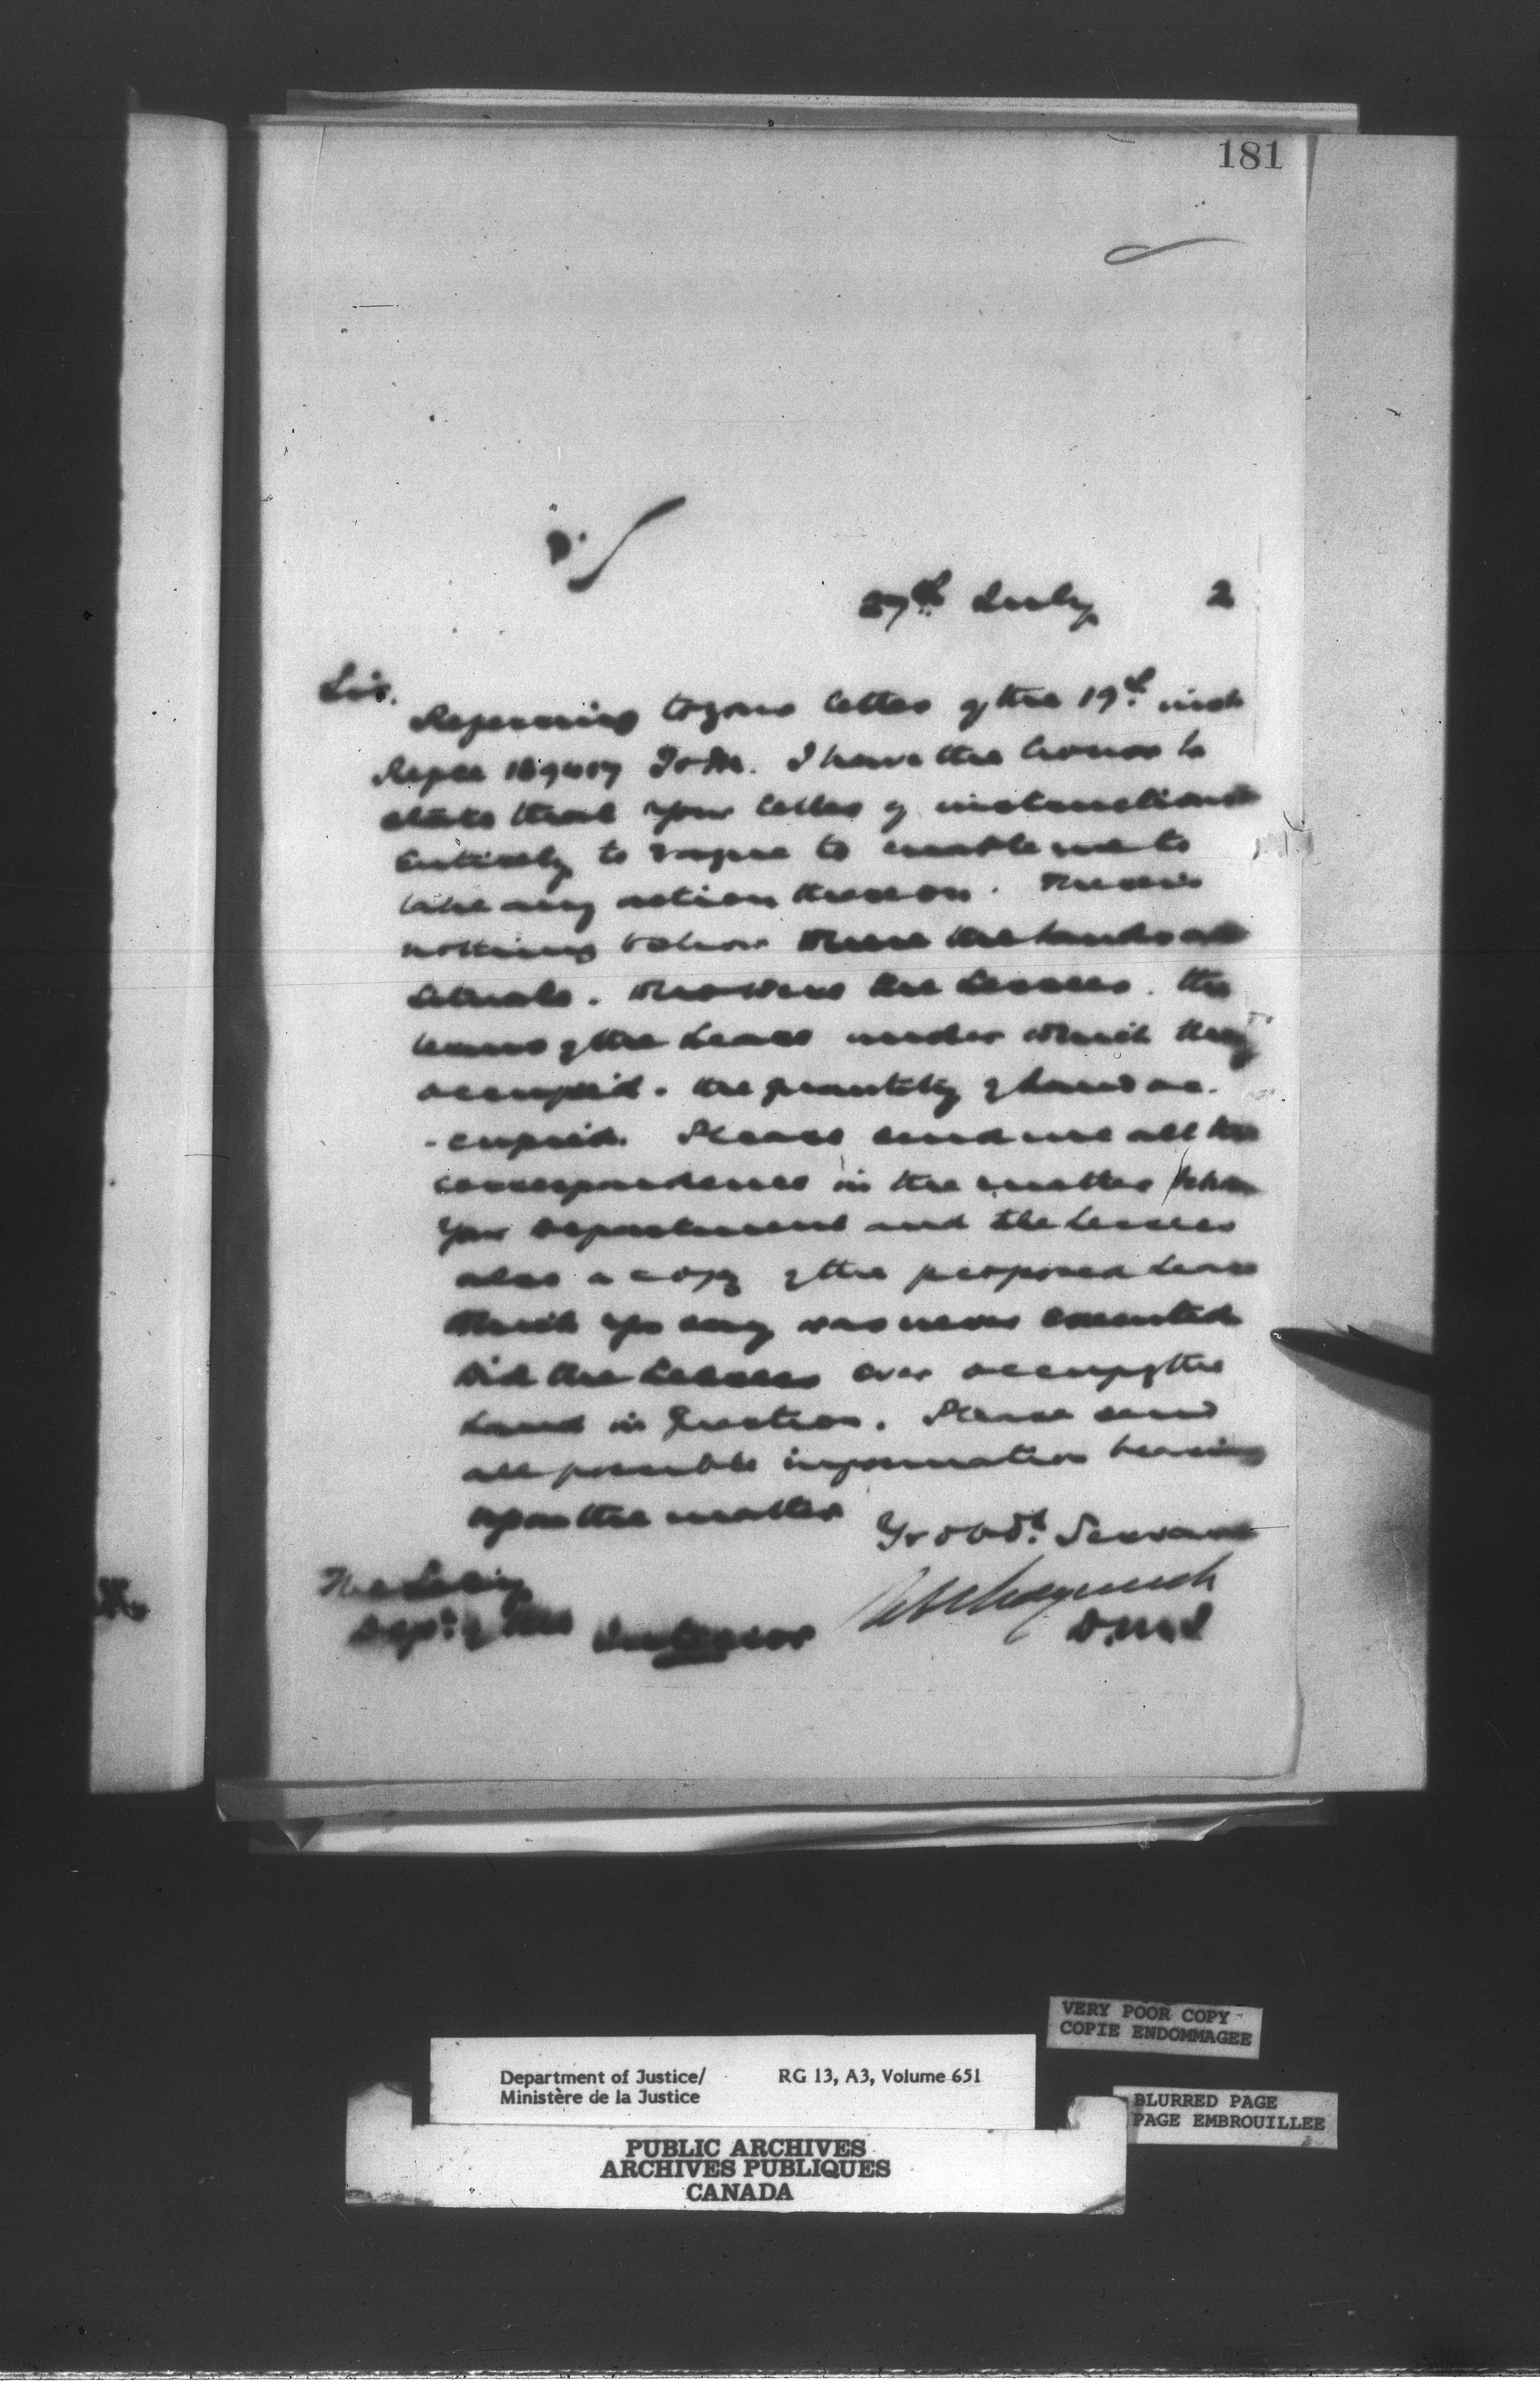 181
27th July 2
Sir.
Referring to your letter of the 19th inst
Refce 189417 T&M. I have the honor to
state that your letter of instructions
entirely to vague to enable me to
take any action thereon. There is
nothing to show where the lands are
situate. Who were the Lessees. the
terms of the Lease under which they
occupied. the quantity of land oc.
-cupied. Please send me all the
correspondence in the matter between
your Department and the Lessees
also a copy of the proposed Lease
which you say was never executed
Did the Lessees ever occupy the
Land in question. Please send
all possible information bearing
upon the matter
Yr obdt. Servant
The Secy
Dept. of the Interior
D.M.J
VERY POOR COPY
COPIE ENDOMMAGEE
Department of Justice/ RG 13, A3, Volume 651
Ministère de la Justice
BLURRED PAGE
PAGE EMBROUILLEE
PUBLIC ARCHIVES
ARCHIVES PUBLIQUES
CANADA